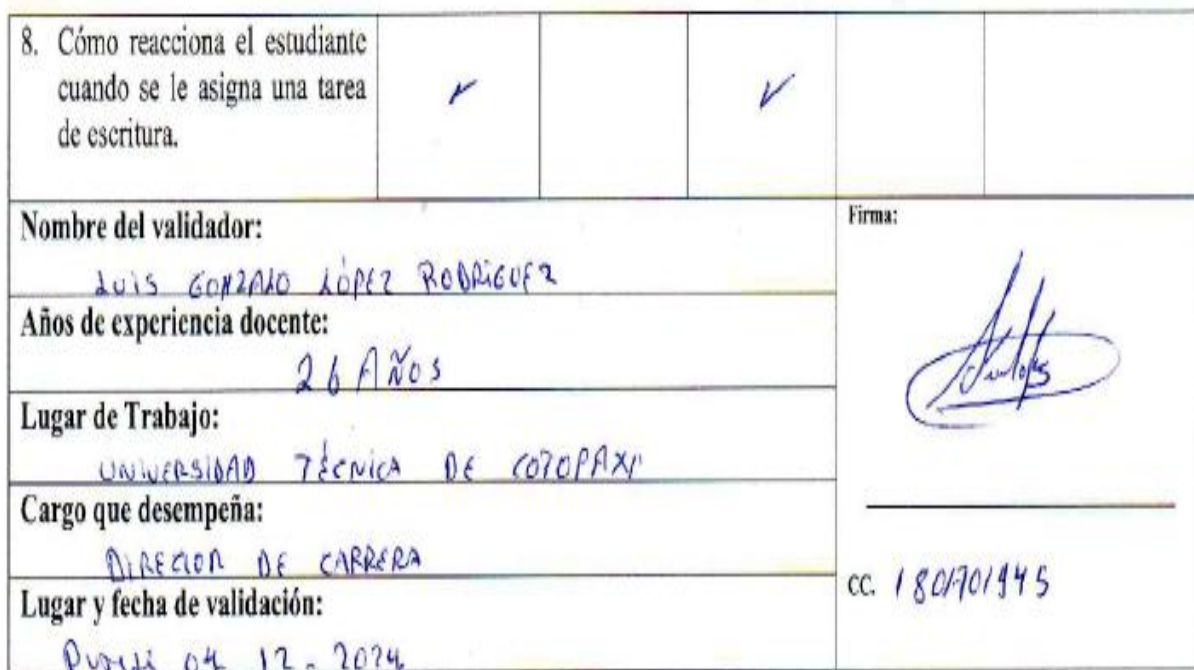 8. Cómo reacciona el estudiante
cuando se le asigna una tarea
de escritura.
✓ ✓
Nombre del validador:
LUIS GONZALO LÓPEZ RODRÍGUEZ
Años de experiencia docente:
26 AÑOS
Lugar de Trabajo:
UNIVERSIDAD TÉCNICA DE COTOPAXI
Cargo que desempeña:
DIRECTOR DE CARRERA
Lugar y fecha de validación:
04 12 - 2024
Firma:
CC. 1801701945